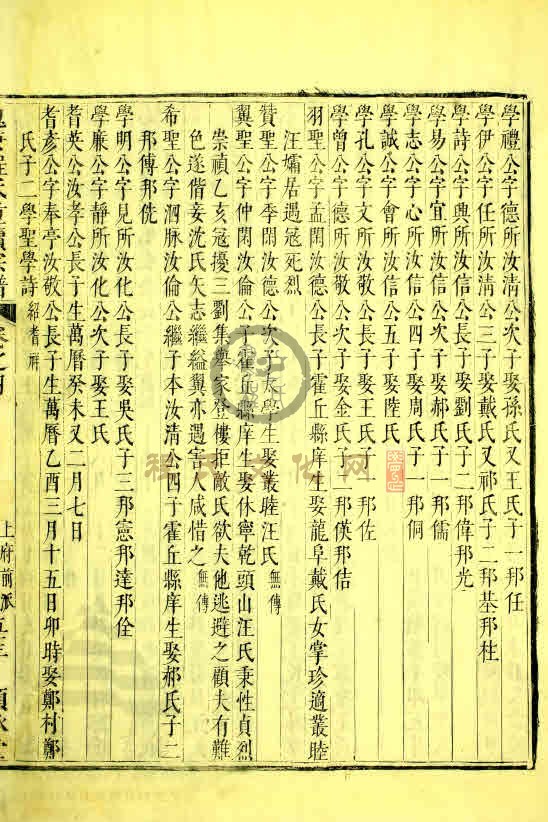 學禮公字德所汝清公次子娶孫氏又王氏子一邦任
學伊公字任所汝清公三子娶戴氏又祁氏子二邦基邦柱
學詩公字興所汝信公長子娶劉氏子二邦偉邦光
學易公字宜所汝信公次子娶郝氏子一邦儒
學志公字心所汝信公四子娶周氏子一邦侗
學誠公字會所汝信公五子娶陸氏
學孔公字文所汝敬公長子娶王氏子一邦佐
學曾公字德所汝敬公次子娶金氏子二邦俠邦佶
羽聖公字孟閑汝德公長子霍丘縣庠生娶龍阜戴氏女掌珍適叢睦
汪孀居遇冦死烈
贊聖公字季閑汝德公次子太學生娶叢睦汪氏無傳
翼聖公字仲閑汝倫公子霍丘縣庠生娶休寧乾頭山汪氏秉性貞烈
崇禎乙亥冦擾三劉集與家登樓拒敵氏欲夫他逃避之顧夫有難
色遂偕妾沈氏矢志繼縊翼亦遇害人咸惜之無傳
希聖公字泗脉汝倫公繼子本汝清公四子霍丘縣庠生娶郝氏子二
邦傳邦侁
學明公字見所汝化公長子娶吳氏子三邦憲邦達邦佺
學廉公字靜所汝化公次子娶王氏
耆英公汝孝公長子生萬曆癸未又二月七日
耆彥公字奉亭汝敬公長子生萬曆乙酉三月十五日卯時娶鄭村鄭
氏子二學聖學詩紹耆所
上府前派
程氏文化网